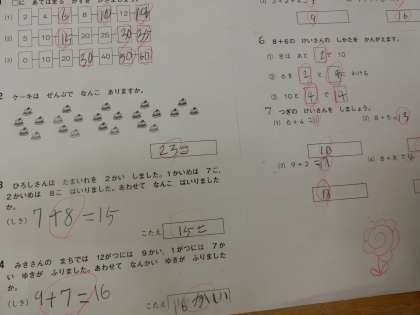 (1) 2 4 6 8 10 12 14
(2) 5 10 15 20 25 30 35
(3) 0 10 20 30 40 50 60
2 ケーキは ぜんぶで なんこ ありますか。
23こ
3 ひろしさんは たまいれを 2かい しました。1かいめは 7こ、
2かいめは 8こ はいりました。あわせて なんこ はいりました
か。
(しき) 7+8=15
こたえ 15こ
4 みささんの まちでは 12がつには 9かい、1がつには 7か
い ゆきが ふりました。あわせて なんかい ゆきが ふりました
か。
(しき) 9+7=16
こたえ 16かい
9
16
6 8+6の けいさんの しかたを かんがえます。
① 8は あと 2で 10
② 6を 2と 4に わける
③ 10と 4で 14
7 つぎの けいさんを しましょう。
(3) 9+2=11